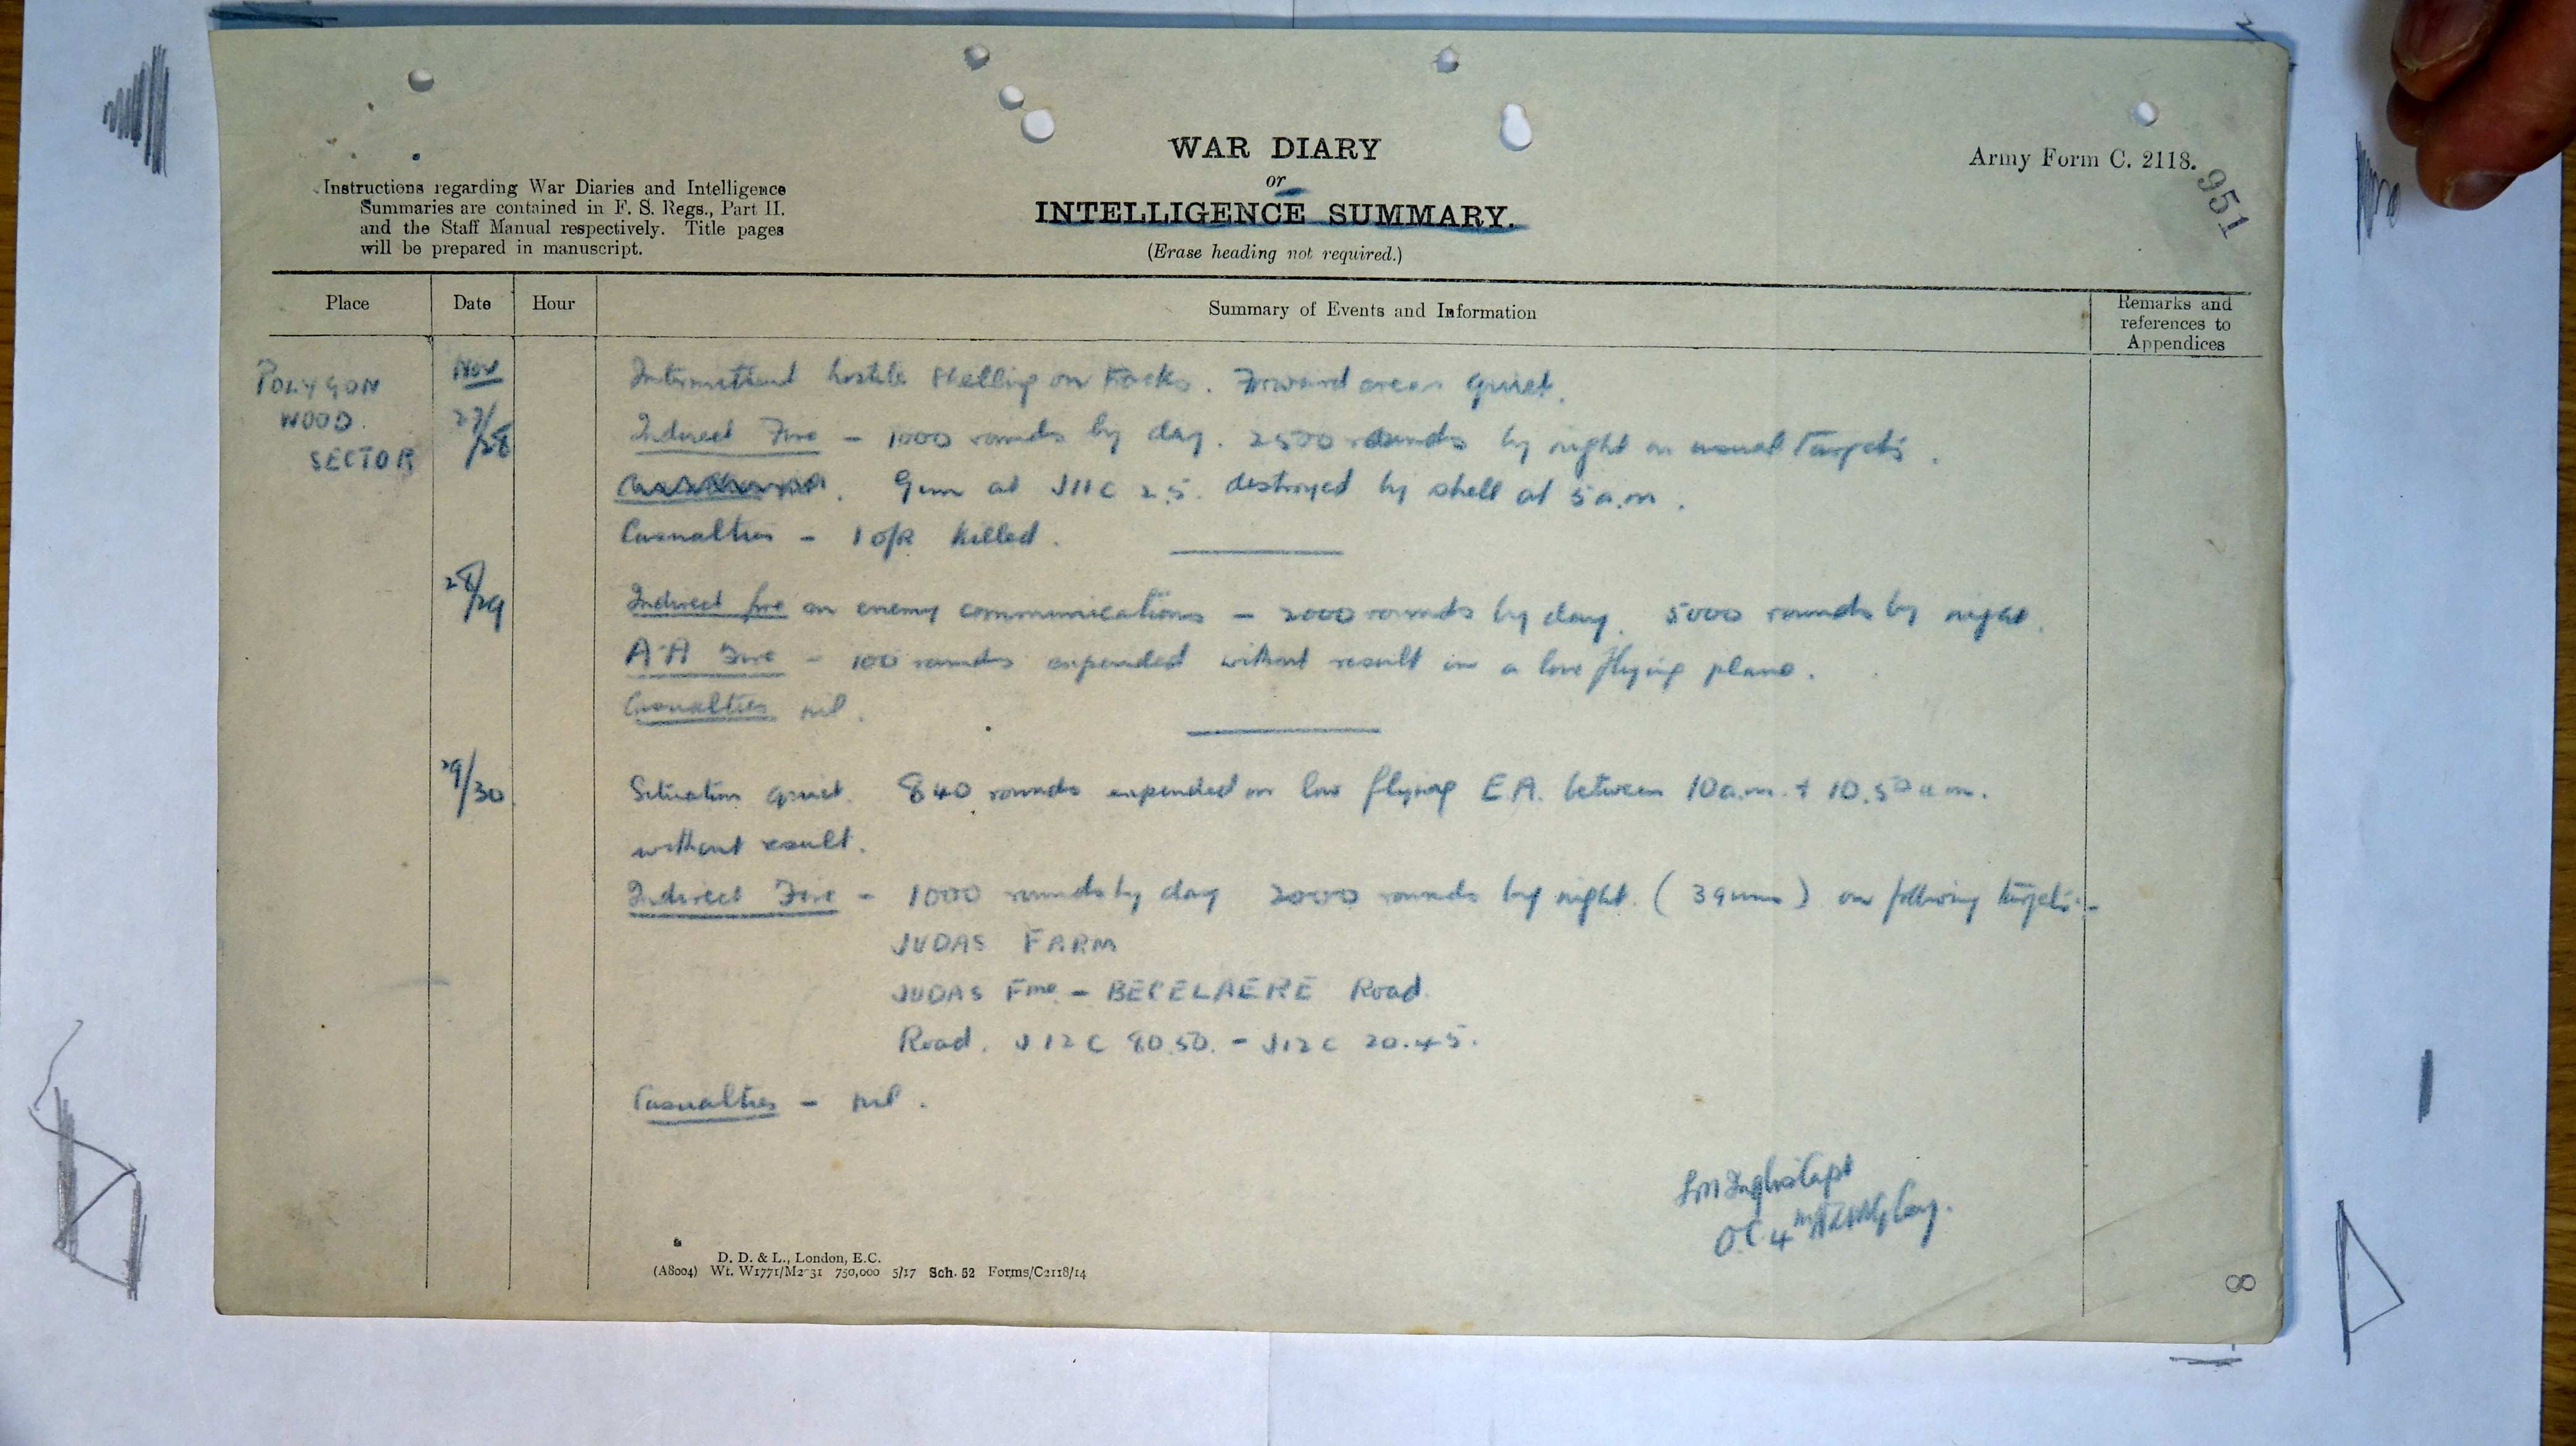 WAR DIARY
or
INTELLIGENCE SUMMARY.
(Erase heading not required.)
Army Form C. 2118.
951
Instructions regarding War Diaries and Intelligence
Summaries are contained in F. S. Regs., Part II.
and the Staff Manual respectively. Title pages
will be prepared in manuscript.
Place Date Hour Summary of Events and Information Remarks and references to Appendices
POLYGON WOOD. SECTOR
Nov 27/28
Intermittent hostile shelling on tracks. Forward areas quiet.
Indirect Fire - 1000 rounds by day. 2500 rounds by night on usual targets.
Gun at J11c 2.5. destroyed by shell at 5 a.m.
Casualties - 1 o/R killed.
28/29
Indirect fire on enemy communications - 2000 rounds by day. 5000 rounds by night.
A-A Fire - 100 rounds expended without result on a low flying plane.
Casualties nil.
29/30.
Situation quiet. 840 rounds expended on low flying E.A. between 10 a.m. + 10.50 a.m.
without result.
Indirect Fire - 1000 rounds by day 2000 rounds by night. (3 guns) on following targets:-
JUDAS FARM
JUDAS Fme - BECELAERE Road.
Road. J12C 80.50. - J12c 20.45.
Casualties - nil.
Capt
O.C 4th Coy.
D. D. & L., London, E.C.
(A8004) Wt. W1771/M2-31 750,000 5/17 Sch. 52 Forms/C2118/14
8